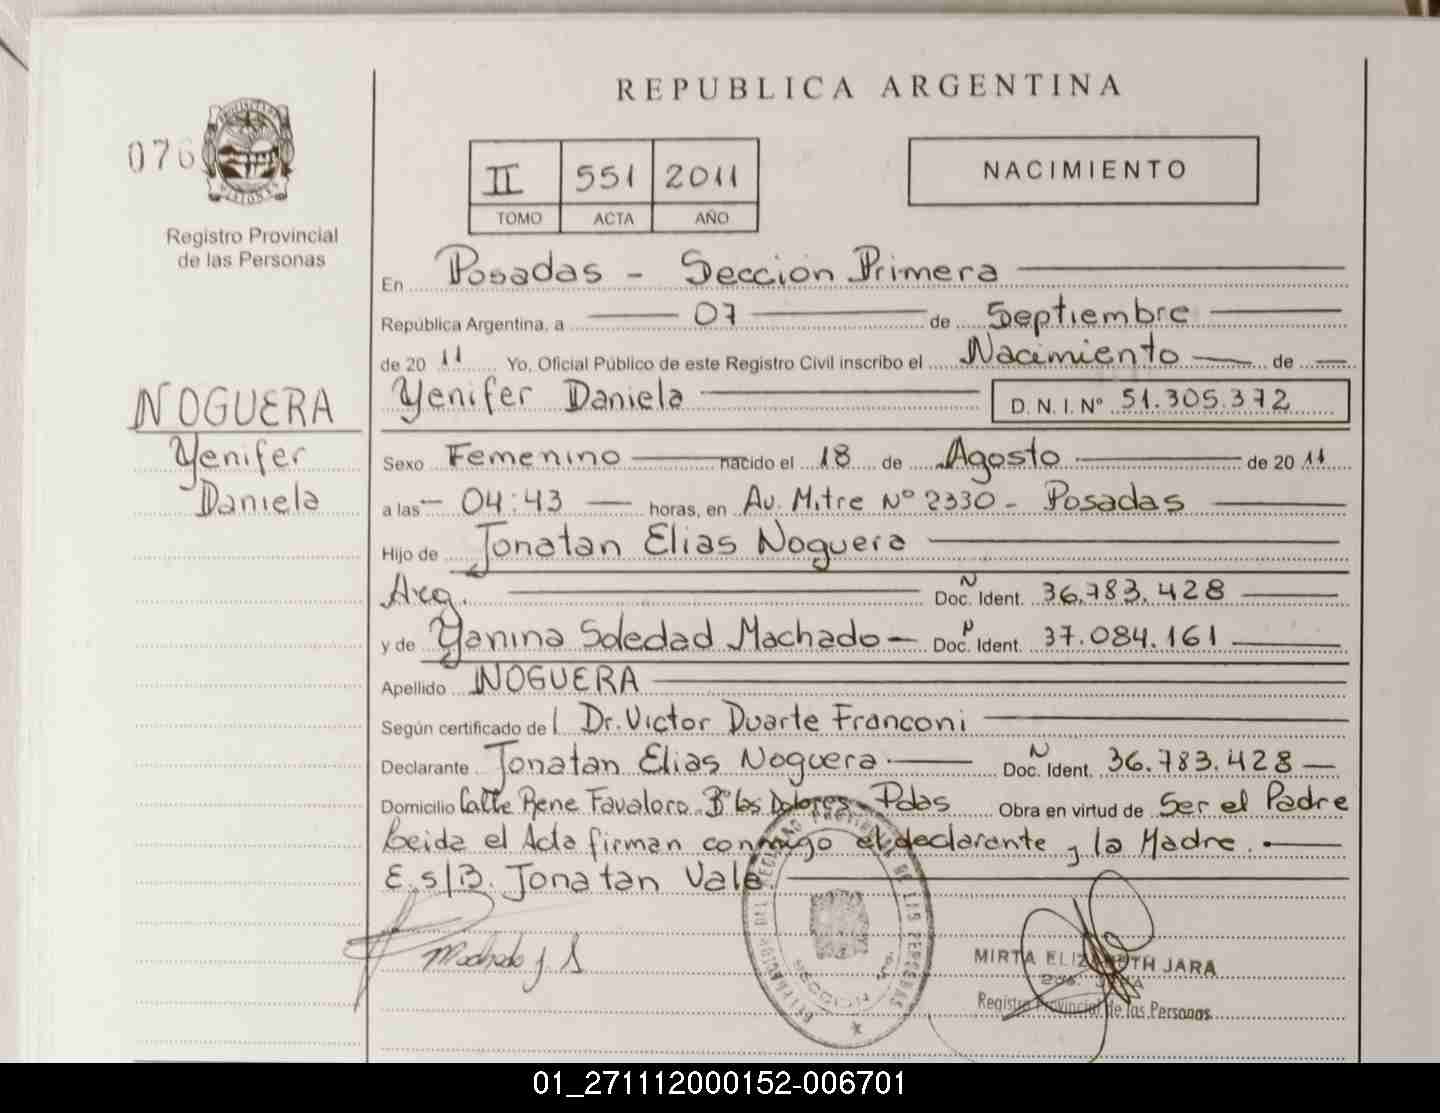 REPUBLICA ARGENTINA
076
Registro Provincial
de las Personas
II 551 2011
TOMO ACTA AÑO
NACIMIENTO
En Posadas - Sección Primera
República Argentina, a 07 de Septiembre
de 2011 Yo, Oficial Público de este Registro Civil inscribo el Nacimiento de
Yenifer Daniela D.N.I.Nº 51.305.372
NOGUERA
Yenifer
Daniela
Sexo Femenino nacido el 18 de Agosto de 2011
a las 04:43 horas, en Av. Mitre Nº 2330 - Posadas
Hijo de Jonatan Elias Noguera
Arg. Doc. Ident. 36.783.428
y de Yanina Soledad Machado Doc. Ident. 37.084.161
Apellido NOGUERA
Según certificado de l Dr. Victor Duarte Franconi
Declarante Jonatan Elias Noguera Doc. Ident. 36.783.428
Domicilio Calle Rene Favaloro Bº los Dolores - Pdas Obra en virtud de Ser el Padre
Leida el Acta firman conmigo el declarante y la Madre.
E.s/B. Jonatan Vale
Machado Y S
MIRTA ELIZABETH JARA
Registro Provincial de las Personas
01_271112000152-006701